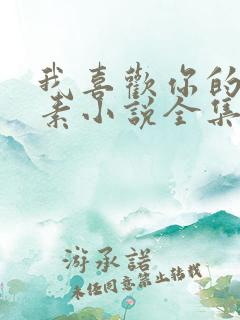 我喜歡你的
素小說全集
游承諾
未經同意禁止轉載